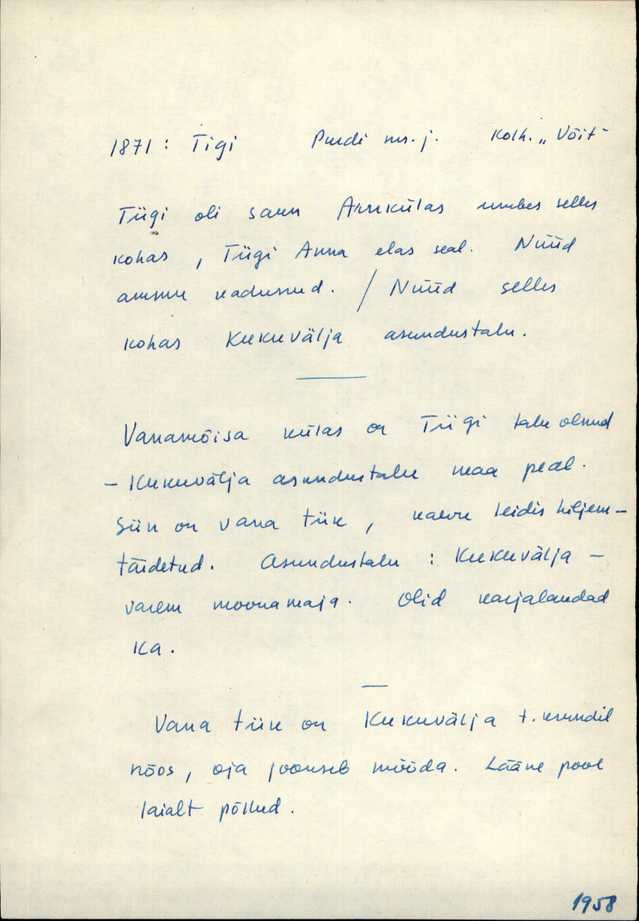 1871: Tigi Purdi ms. j. Kolh. „Võit"
Tiigi oli saun Arukülas umbes selles
kohas, Tiigi Anna elas seal. Nüüd
ammu kadunud. / Nüüd selles
kohas Kukuvälja asundustalu.
Vanamõisa külas on Tiigi talu olnud
- Kukuvälja asundustalu maa peal.
Siin on vana tiik, kaevu leidis hiljem-
täidetud. Asundustalu: Kukuvälja -
varem moonamaja. Olid karjalaudad
ka.
Vana tiik on Kukuvälja t. krundil
nõos, oja jookseb mööda. Lääne pool
laialt põllud.
1958